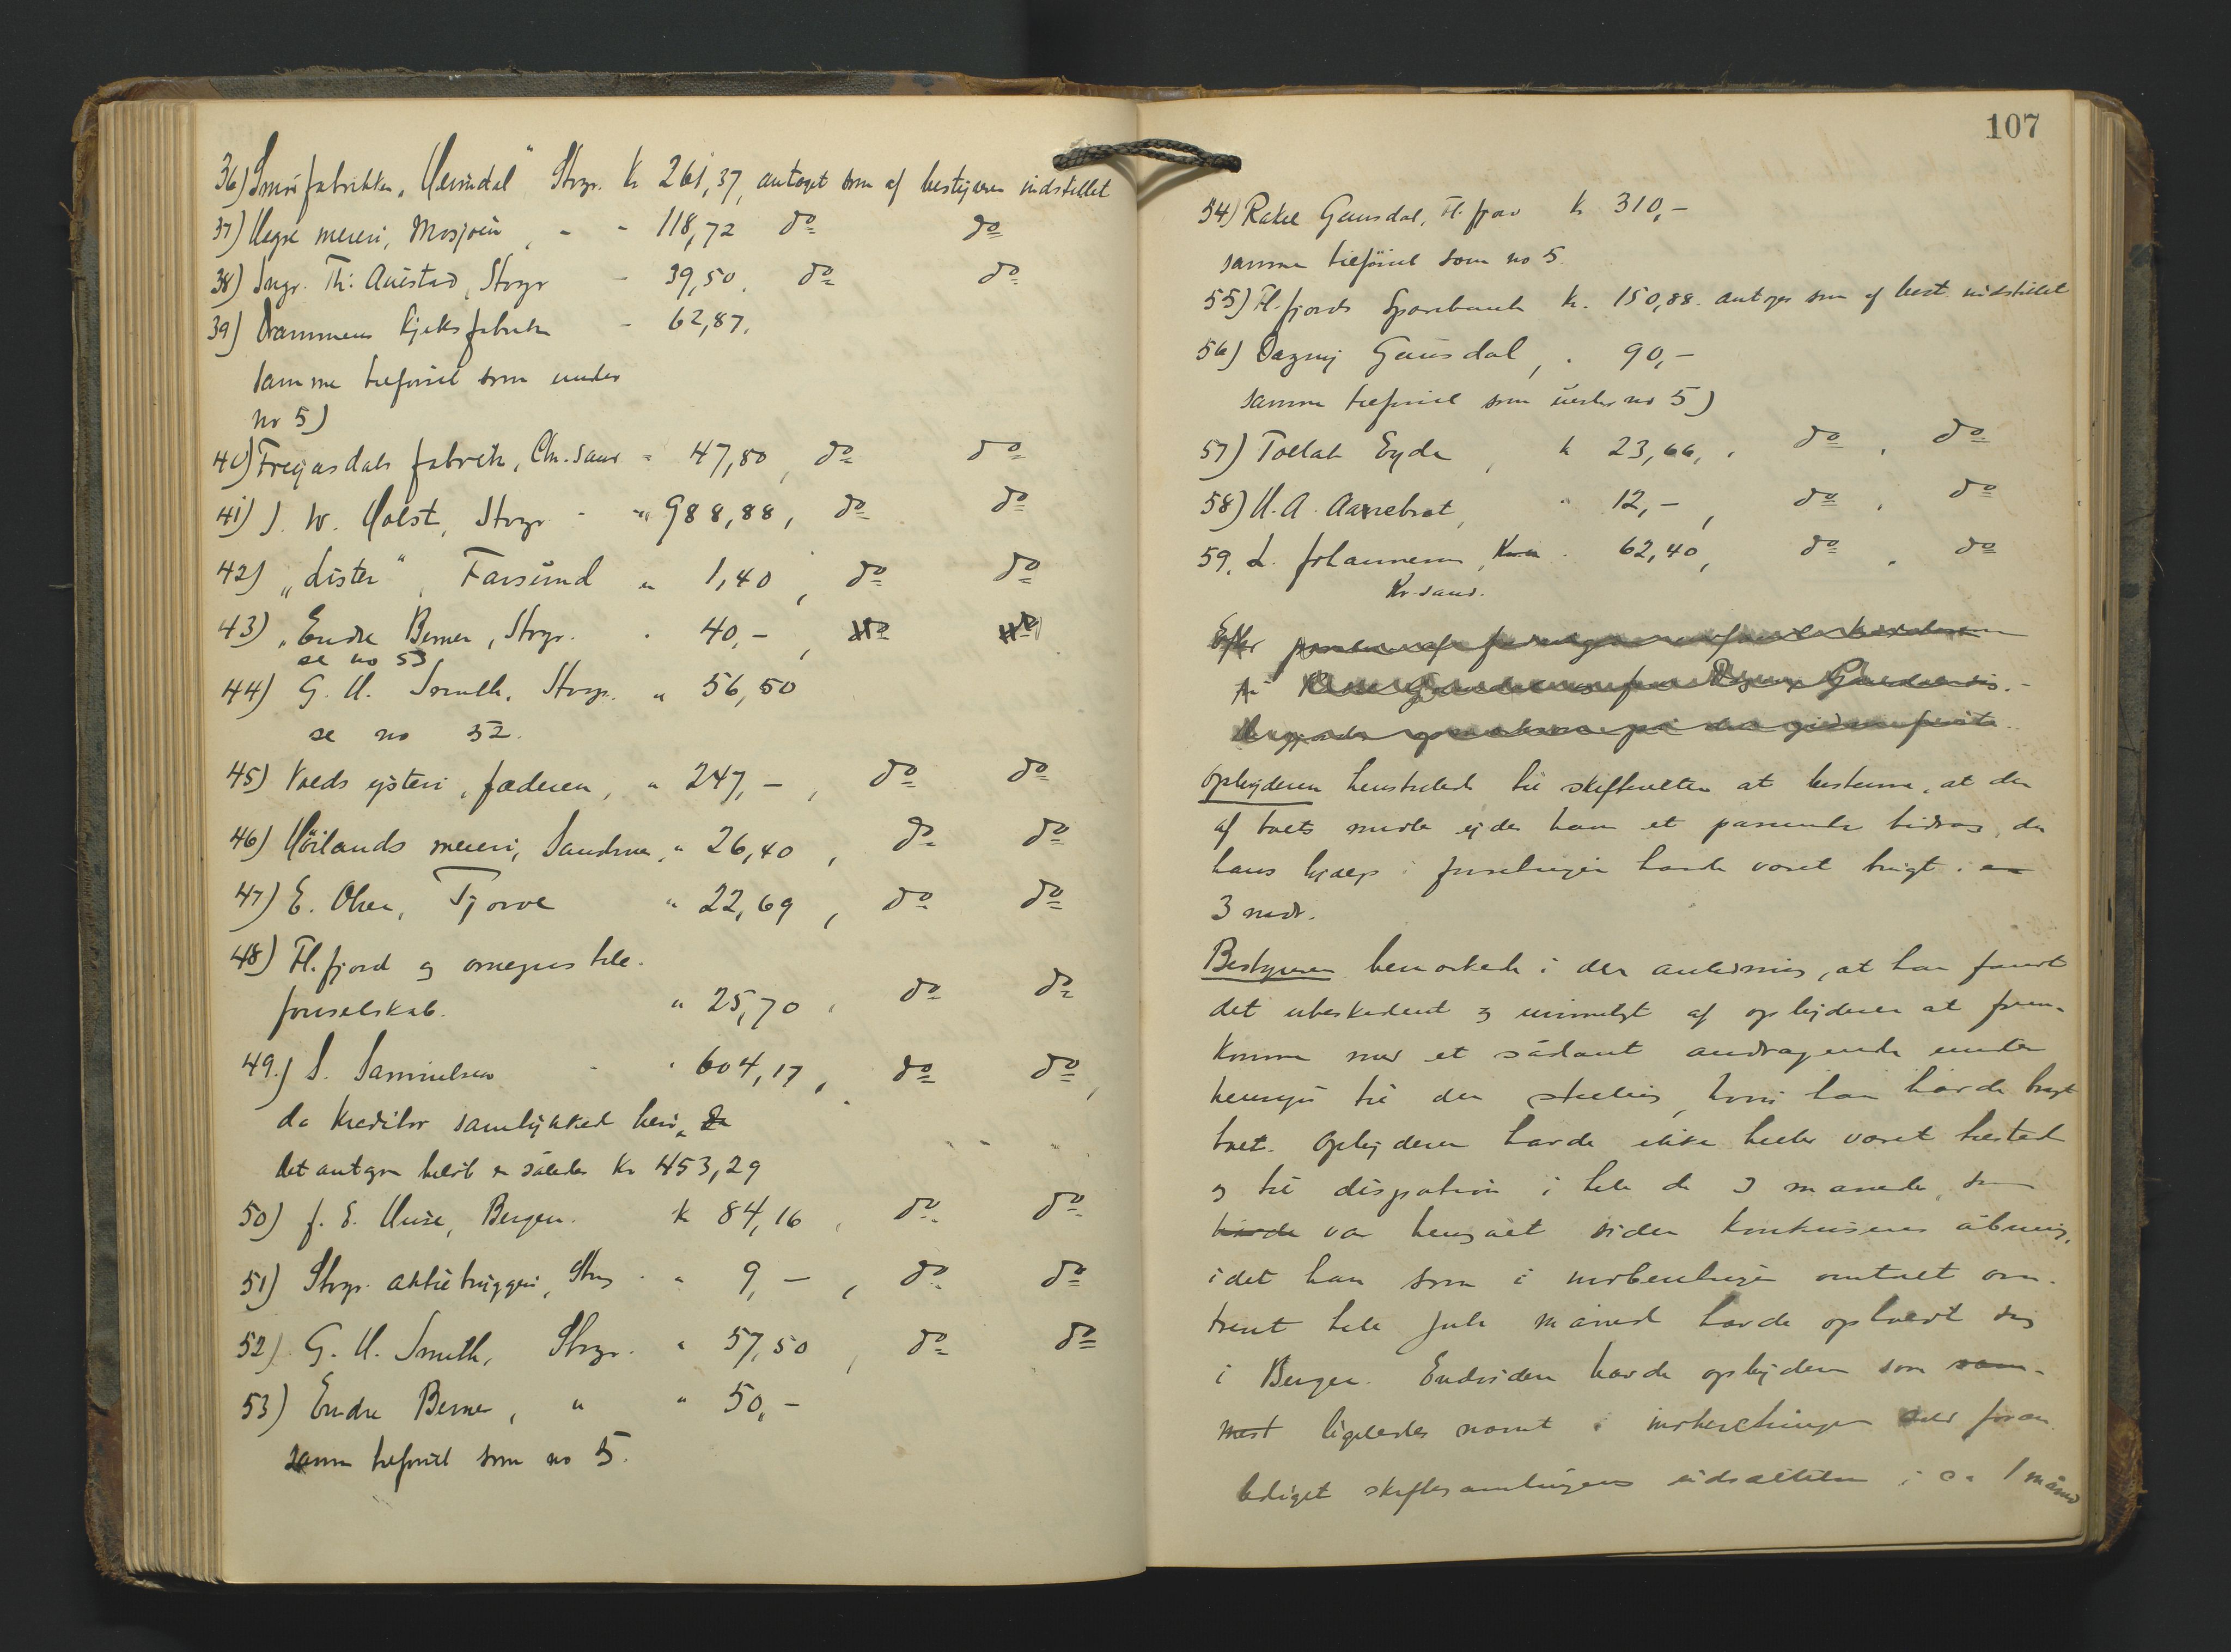 36) Smørfabrikken „Heimdal“ Stvgr. kr 261,37, antaget som af bestyreren indstillet
37) Vegse meieri, Mosjøen, - - 118,72 do do
38) Ingv. Th: Auestad, Stvgr - 39,50. do do
39) Drammens kjeksfabrik - 62,87.
samme tilføiel som under
no 5)
40) Fregasdals fabrik, Chr.sand - 47,80, do do
41) J. W. Holst, Stvgr - " 988,88, do do
42) „Lister“, Farsund " 1,40, do do
43) „Endre Berner, Stvgr. . 40,-,
se no 53
44) G. H. Smith, Stvgr. " 56,50
se no 52.
45) Volds ysteri, Jæderen, " 247,-, do do
46) Høilands meieri, Sandnes, " 26,40, do do
47) E. Olsen, Tjorve " 22,69, do do
48) Fl.fjord og omegns tele-
fonselskab. " 25,70, do do
49.) S. Samuelsen - " 604,17, do do,
da kreditor samtykked heri.
Det antagne beløb er således kr 453,29
50) J. E. Huse, Bergen. kr 84,16, do do
51) Stvgr. aktiebryggeri, Stvg . " 9,-, do do
52) G. H. Smith, Stvgr. " 57,50, do do
53) Endre Berner, " " 50,-
samme tilføiel som no 5.
107
54) Rakel Gausdal, Fl.fjord kr 310,-
samme tilføiel som no 5.
55) Fl.fjords Sparebank kr. 150,88. antages som af best. indstillet
56) Dagny Gausdal, . 90,-
samme tilføiel som under no 5)
57) Tollak Eyde, kr 23,66,. do, do
58) H. A. Aarrebrot, " 12,-, do, do
59. L. Johannesen, . 62,40, do . do
Kr.sand.
Efter
Opbyderen henstilled til skifteretten at bestemme, at der
af boets midler ydes ham et passende bidrag, da
hans hjælp i forretningen havde været brugt i
3 mdr.
Bestyreren bemærkede i den anledning, at han fandt
det ubeskedent og urimeligt af opbyderen at frem-
komme med et sådant andragende under
hensyn til den stilling, hvori han havde bragt
boet. Opbyderen havde ikke heller været tilsted
og til disposition i hele de 3 måneder, som
havde var hengået siden konkursens åbning,
idet han som i indberetningen omtalt om-
trent hele juli måned havde opholdt sig
i Bergen. Endvidere havde opbyderen som sam-
med ligeledes nævnt i indberetningen foran-
lediget skiftesamlingens udsættelse i ca 1 måned